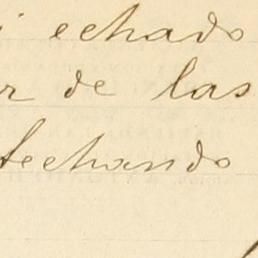 echado
de las
fechando